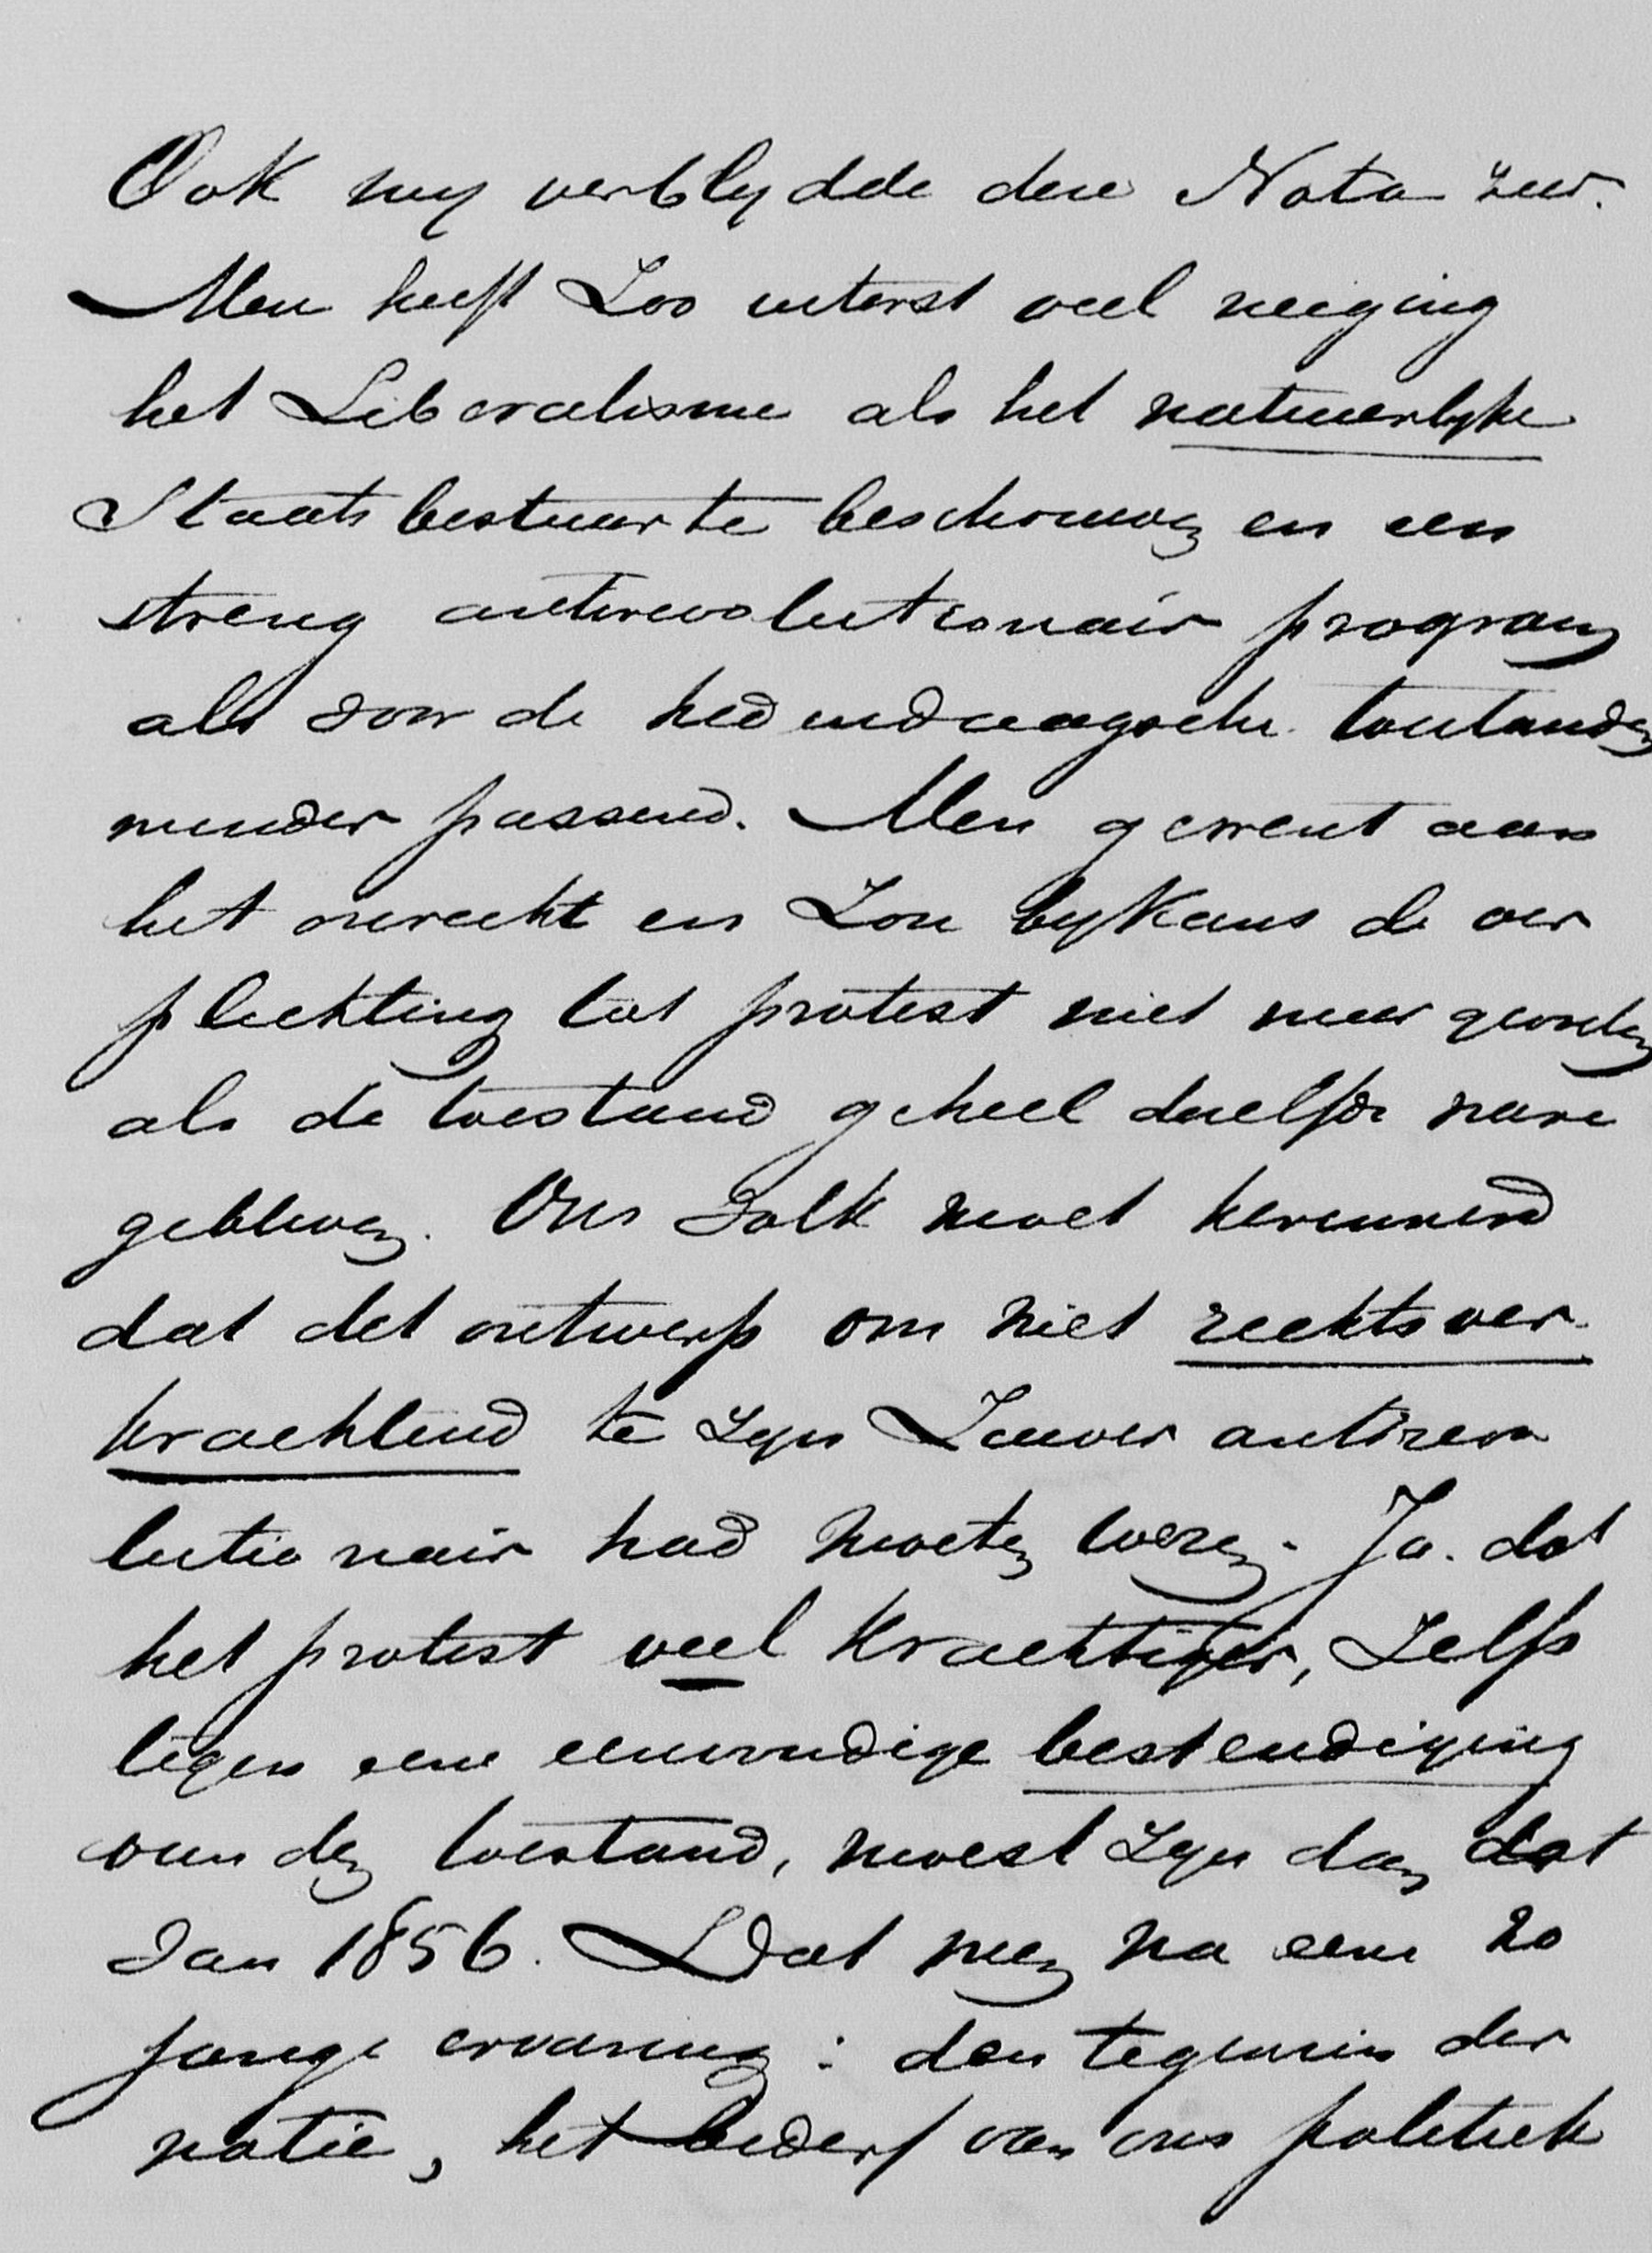 Ook my verblydde deze Nota zeer.
Men heeft Zoo uiterst veel neiging
het Liberalisme als het natuurlyke
Staatsbestuur te beschouwen en een
streng antirevolutionair program
als voor de hedendaagsche toestanden
minder passend. Men gewent aan
het onrecht en Zou bykans de ver
plichting tot protest niet meer gevoelen
als de toestand geheel dezelfde ware
gebleven. Ons Volk moet herinnerd
dat det ontwerp om niet rechtsver
krachtend te zyn Zuiver antirevo
lutionair had moeten wezen. Ja. dat
het protest veel Krachtiger, Zelfs
tegen eene eenvoudige bestendiging
van den toestand, moest zyn dan dat
Van 1856. Dat men na eene 20
jarige ervaring: den tegenzin der
natie, het bederf van ons politiek